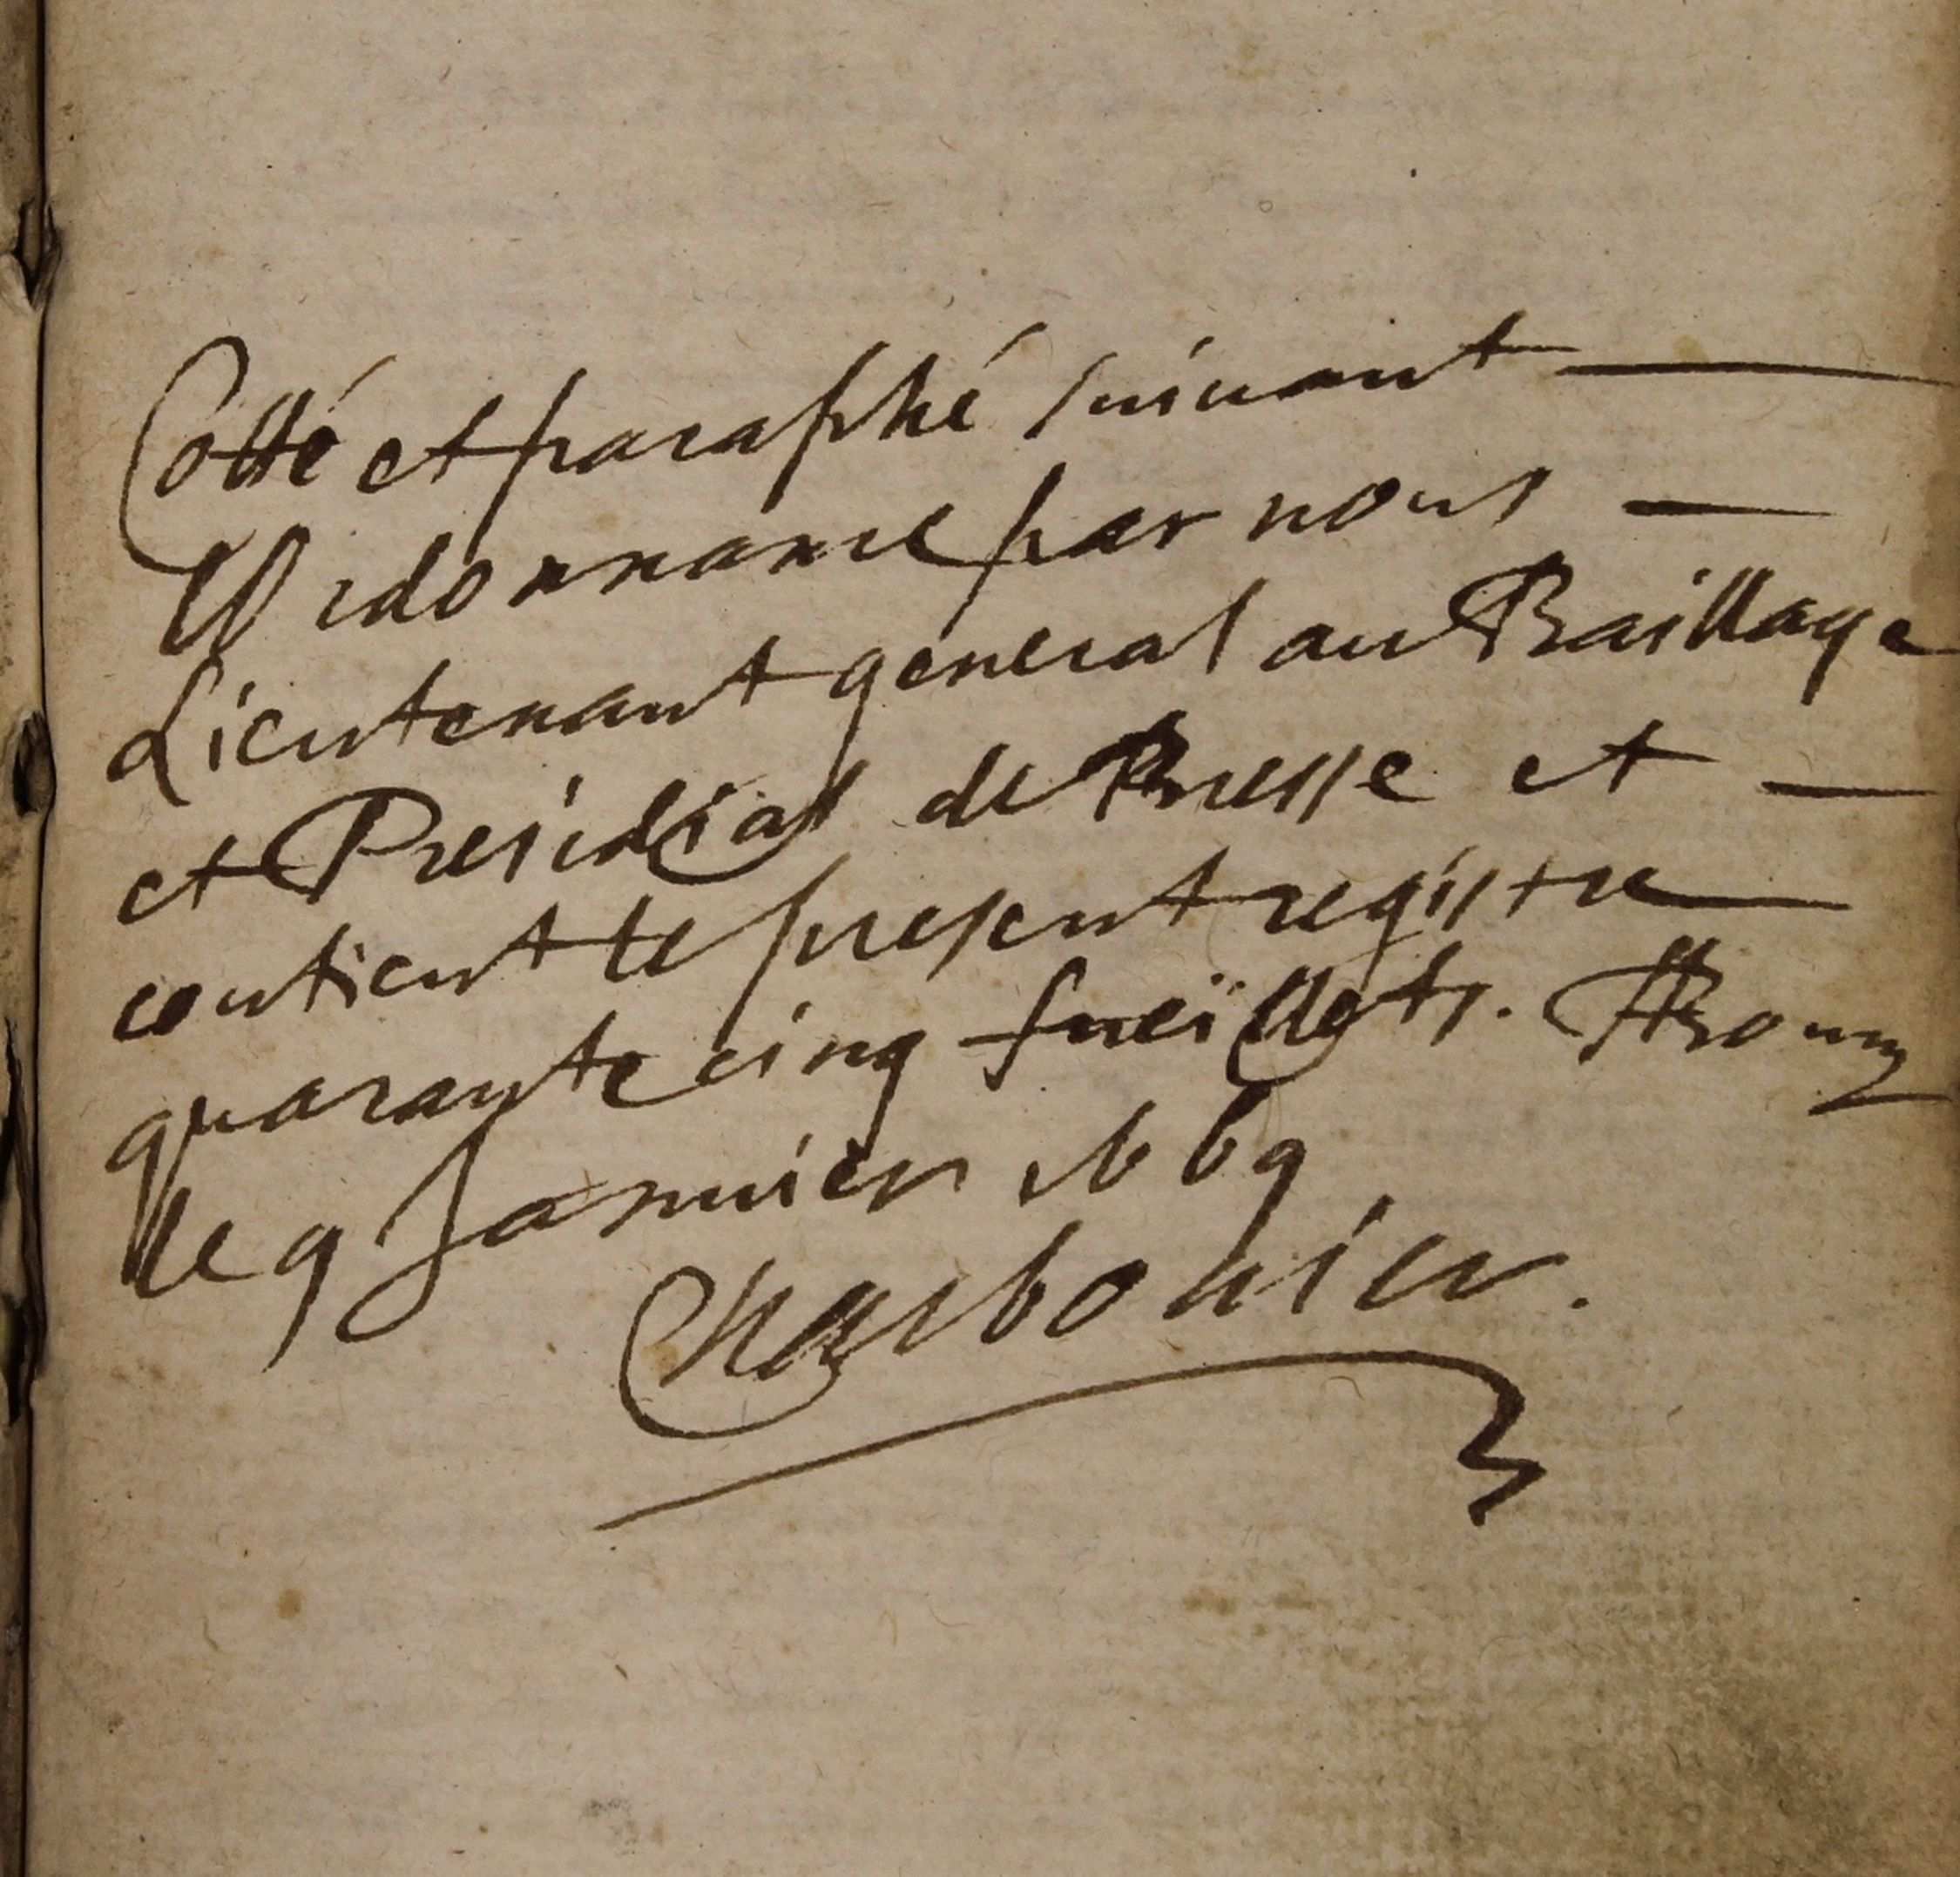 Cotté et paraphé suivant
l'Ordonnance par nous
Lieutenant general au Baillage
et Presidial de Bresse et
contient le present registre
quarante cinq fueïllets. A Bourg
le 9 Januier 1669
Charbonier.